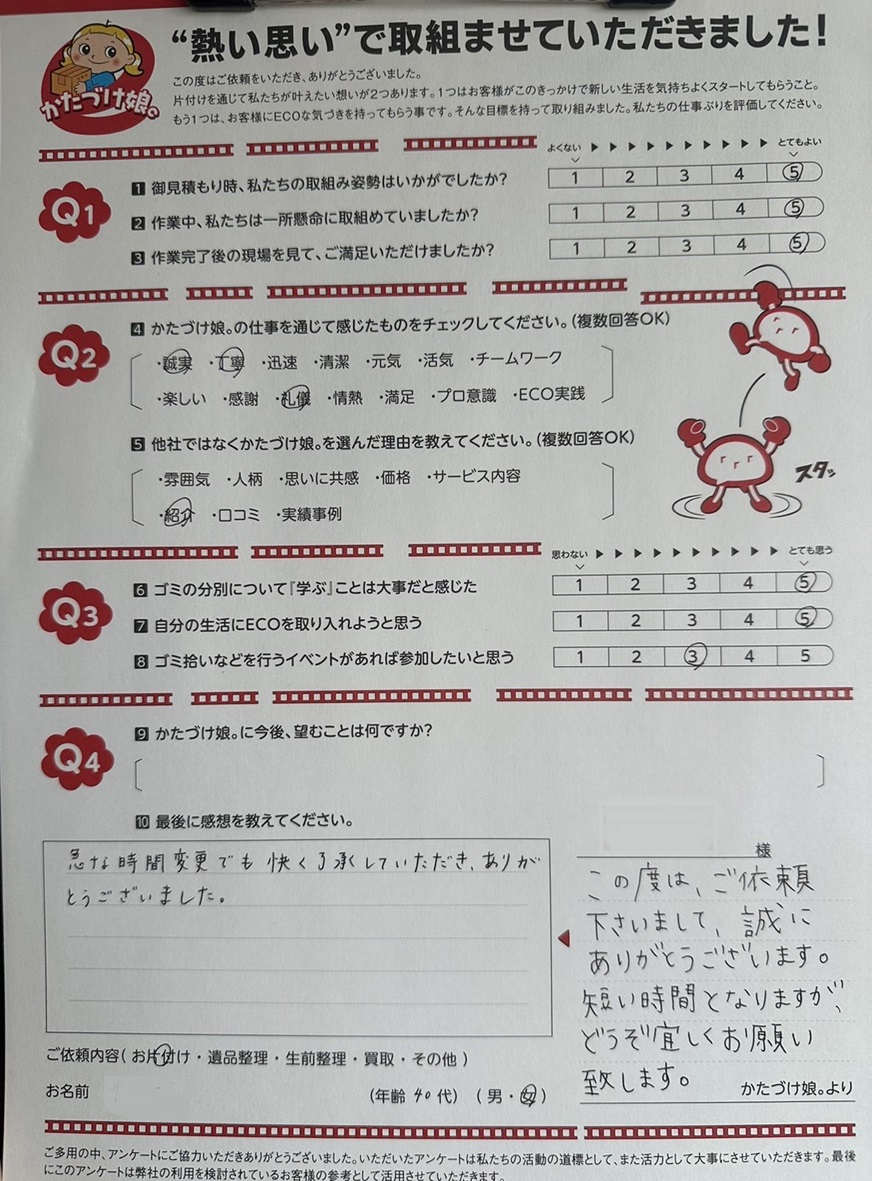 “熱い思い”で取組ませていただきました!
かたづけ娘。
この度はご依頼をいただき、ありがとうございました。
片付けを通じて私たちが叶えたい想いが2つあります。1つはお客様がこのきっかけで新しい生活を気持ちよくスタートしてもらうこと。
もう1つは、お客様にECOな気づきを持ってもらう事です。そんな目標を持って取り組みました。私たちの仕事ぶりを評価してください。
よくない ▶ ▶ ▶ ▶ ▶ ▶ ▶ ▶ ▶ ▶ とてもよい
Q1
1 御見積もり時、私たちの取組み姿勢はいかがでしたか? 1 2 3 4 5
2 作業中、私たちは一所懸命に取組めていましたか? 1 2 3 4 5
3 作業完了後の現場を見て、ご満足いただけましたか? 1 2 3 4 5
Q2
4 かたづけ娘。の仕事を通じて感じたものをチェックしてください。(複数回答OK)
・誠実 ・丁寧 ・迅速 ・清潔 ・元気 ・活気 ・チームワーク
・楽しい ・感謝 ・礼儀 ・情熱 ・満足 ・プロ意識 ・ECO実践
5 他社ではなくかたづけ娘。を選んだ理由を教えてください。(複数回答OK)
・雰囲気 ・人柄 ・思いに共感 ・価格 ・サービス内容
・紹介 ・口コミ ・実績事例
スタッ
思わない ▶ ▶ ▶ ▶ ▶ ▶ ▶ ▶ ▶ ▶ とても思う
Q3
6 ゴミの分別について『学ぶ』ことは大事だと感じた 1 2 3 4 5
7 自分の生活にECOを取り入れようと思う 1 2 3 4 5
8 ゴミ拾いなどを行うイベントがあれば参加したいと思う 1 2 3 4 5
Q4
9 かたづけ娘。に今後、望むことは何ですか?
10 最後に感想を教えてください。
急な時間変更でも快く了承していただき、ありが
とうございました。
様
この度は、ご依頼
下さいまして、誠に
ありがとうございます。
短い時間となりますが、
どうぞ宜しくお願い
致します。
かたづけ娘。より
ご依頼内容(お片付け・遺品整理・生前整理・買取・その他)
お名前 (年齢 40代) (男・女)
ご多用の中、アンケートにご協力いただきありがとうございました。いただいたアンケートは私たちの活動の道標として、また活力として大事にさせていただきます。最後
にこのアンケートは弊社の利用を検討されているお客様の参考として活用させていただきます。